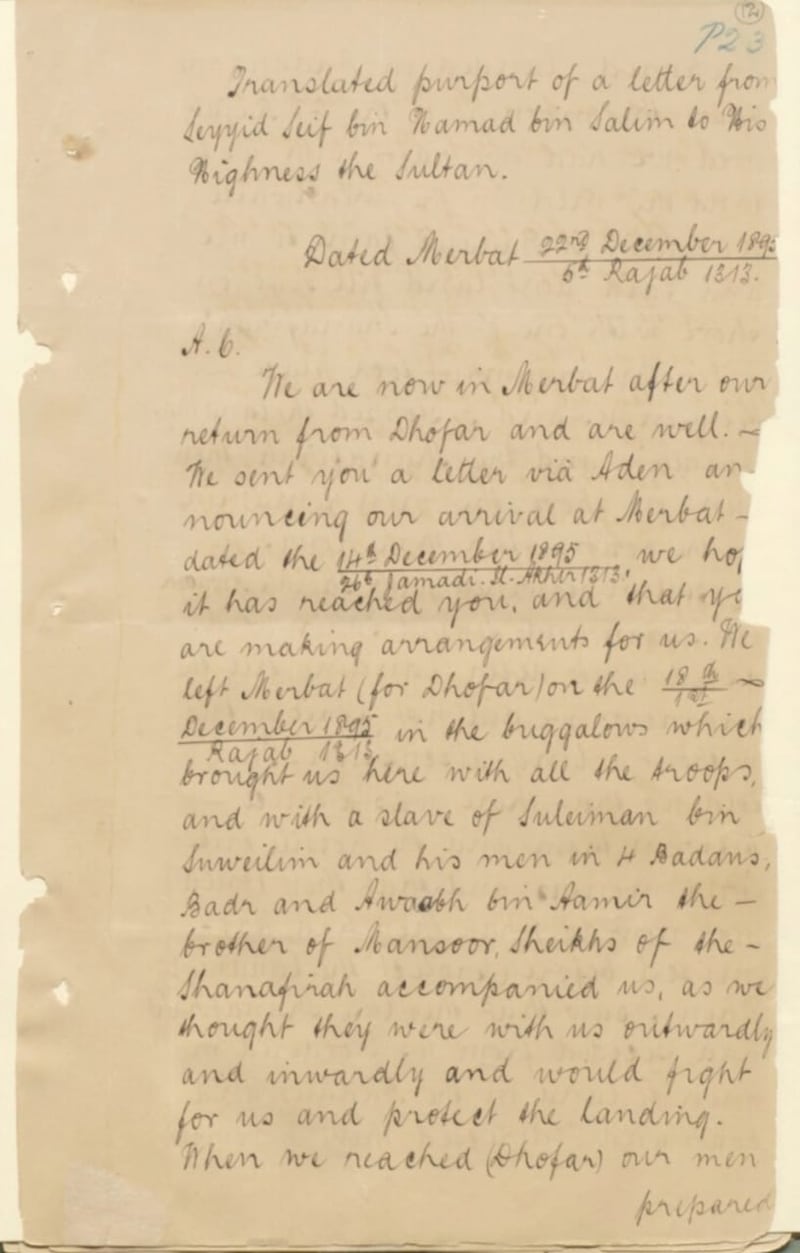 (2)
P23
Translated purport of a letter from
Seyyid Seif bin Hamad bin Salim to His
Highness the Sultan.
Dated Merbat 22nd December 1895
5th Rajab 1313.
A. C.
We are now in Merbat after our
return from Dhofar and are well. ~
We sent you a letter via Aden an-
nouncing our arrival at Merbat -
dated the 14th December 1895 we hop
26th Jamadi-il-Akhir 1313,
it has reached you, and that yo
are making arrangements for us. We
left Merbat (for Dhofar) on the 18th ~
1st
December 1895 in the buggalows which
Rajab 1313
brought us here with all the troops,
and with a slave of Suleiman bin
Suweilim and his men in 4 Badans,
Badr and Awadh bin Aamir the -
brother of Mansoor, Sheikhs of the -
Shanafirah accompanied us, as we
thought they were with us outwardly
and inwardly and would fight
for us and protect the landing.
When we reached (Dhofar) our men
prepared